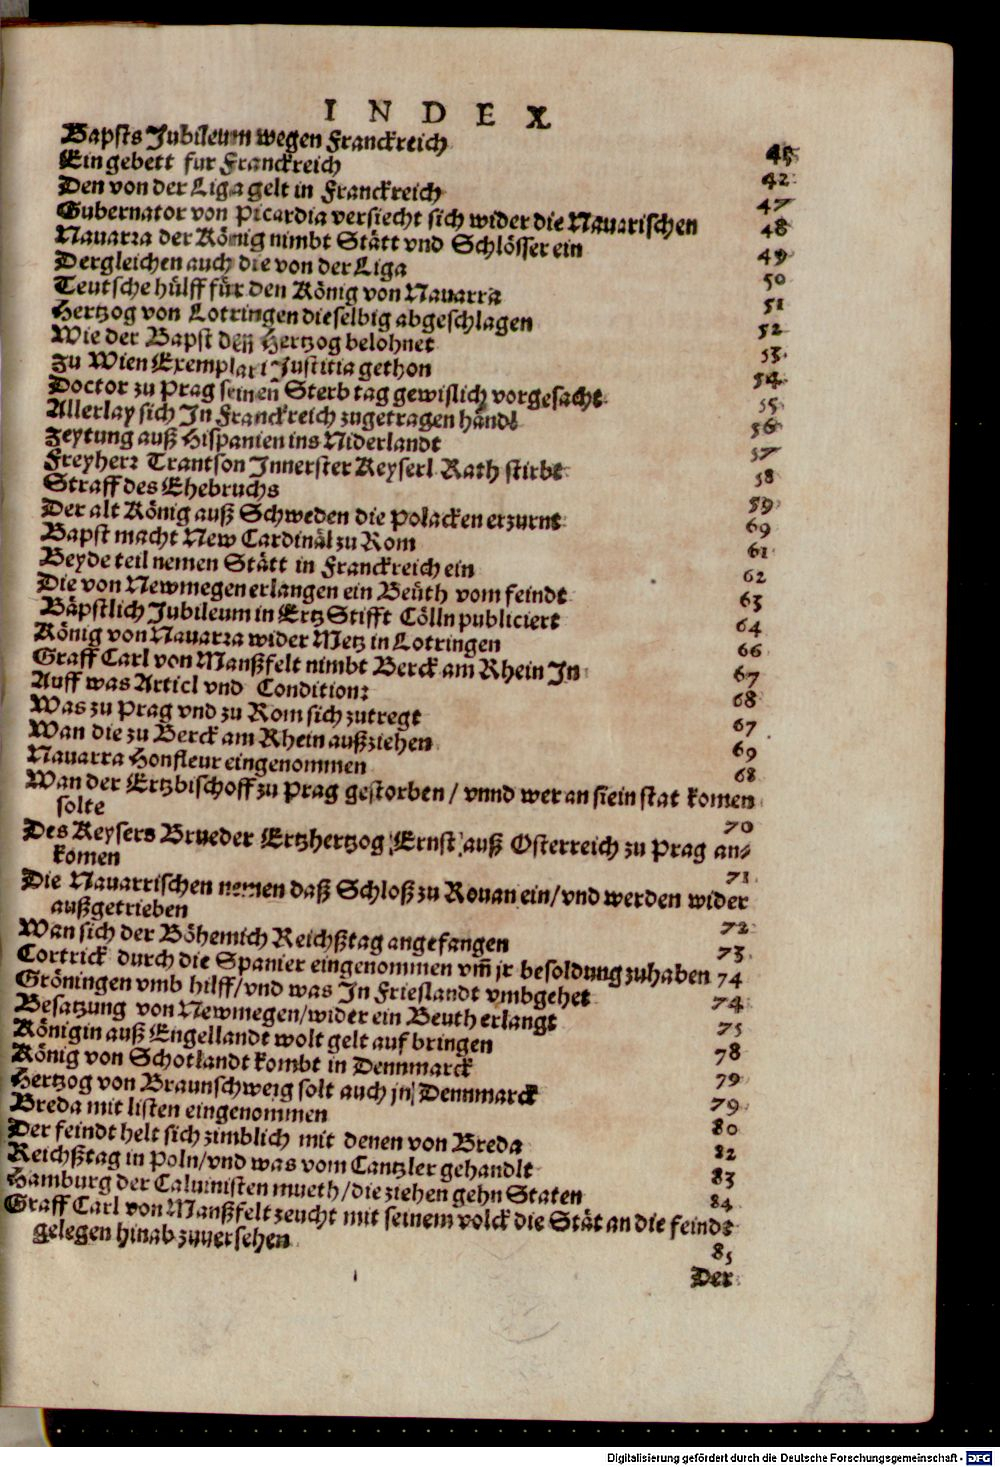 INDEX
Bapsts Jubileum wegen Franckreich 45
Ein gebett fur Franckreich 42
Den von der Liga gelt in Franckreich 47
Gubernator von Picardia versiecht sich wider die Nauarischen 48
Nauarra der König nimbt Stätt vnd Schlösser ein 49
Dergleichen auch die von der Liga 50
Teutsche hülff für den König von Nauarra 51
Hertzog von Lotringen dieselbig abgeschlagen 52
Wie der Bapst den Hertzog belohnet 53
Zu Wien Exemplari Justitia gethon 54
Doctor zu Prag seinen Sterb tag gewislich vorgesacht 55
Allerlay sich In Franckreich zugetragen händl 56
Zeytung auß Hispanien ins Niderlandt 57
Freyherr Trantson Innerster Keyserl Rath stirbt 58
Straff des Ehebruchs 59
Der alt König auß Schweden die Polacken erzurnt 69
Bapst macht New Cardinäl zu Rom 61
Beyde teil nemen Stätt in Franckreich ein 62
Die von Newmegen erlangen ein Beüth vom feindt 63
Bäpstlich Jubileum in Ertz Stifft Cölln publiciert 64
König von Nauarra wider Metz in Lotringen 66
Graff Carl von Manßfelt nimbt Berck am Rhein In 67
Auff was Articl vnd Condition: 68
Was zu Prag vnd zu Rom sich zutregt 67
Wan die zu Berck am Rhein außziehen 69
Nauarra Honfleur eingenommen 68
Wan der Ertzbischoff zu Prag gestorben / vnnd wer an sie in stat komen
solte 70
Des Keysers Brueder Ertzhertzog Ernst auß Osterreich zu Prag an-
komen 71
Die Nauarrischen nemen daß Schloß zu Rouan ein/vnd werden wider
außgetrieben 72
Wan sich der Böhemich Reichßtag angefangen 73
Cortrick durch die Spanier eingenommen vm̃ jr besoldung zuhaben 74
Gröningen vmb hilff/vnd was In Frieslandt vmbgehet 74
Besatzung von Newmegen/wider ein Beuth erlangt 75
Königin auß Engellandt wolt gelt auf bringen 78
König von Schotlandt kombt in Dennmarck 79
Hertzog von Braunschweig solt auch jn Dennmarck 79
Breda mit listen eingenommen 80
Der feindt helt sich zimblich mit denen von Breda 82
Reichßtag in Poln/vnd was vom Cantzler gehandlt 83
Hamburg der Caluinisten mueth/die ziehen gehn Staten 84
Graff Carl von Manßfelt zeucht mit seinem volck die Stät an die feindt
gelegen hinab zuuersehen 85
Der
Digitalisierung gefördert durch die Deutsche Forschungsgemeinschaft - DFG